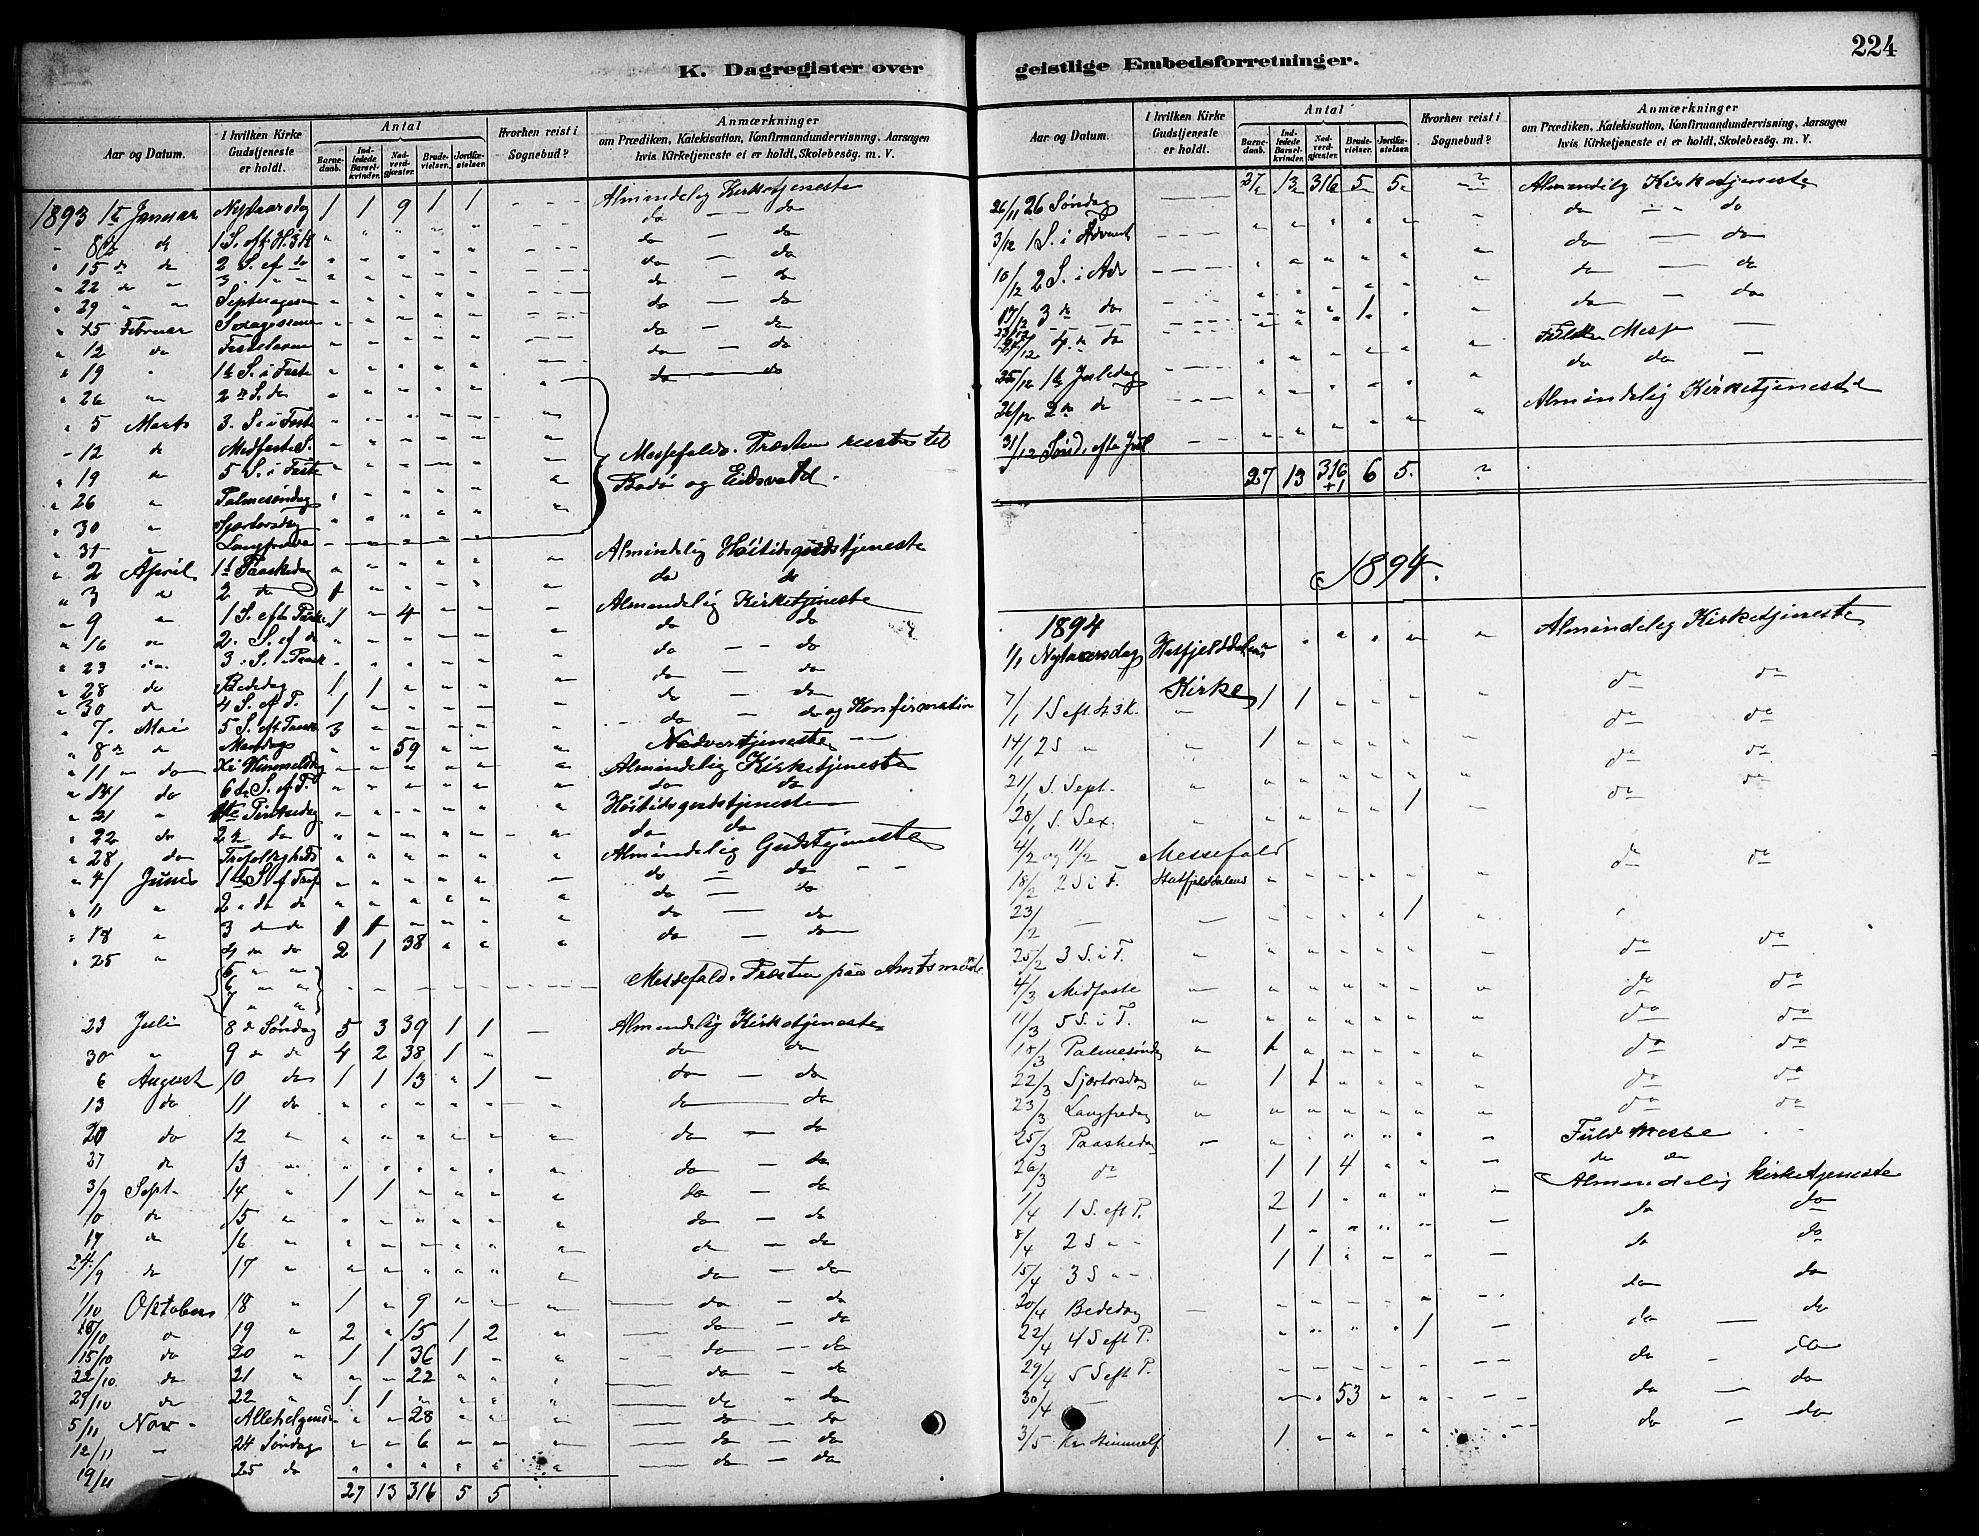 224
K. Dagregister over geistlige Embedsforretninger.
Aar og Datum.
I hvilken Kirke Gudstjeneste er holdt.
Antal
Barnedaab.
Indledede Barselkvinder.
Nadverdgjester.
Brudevielser.
Jordfæstelser.
Hvorhen reist i Sognebud?
Anmærkninger
om Prædiken, Katekisation, Konfirmandundervisning, Aarsagen
hvis Kirketjeneste ei er holdt, Skolebesøg. m. V.
1893 1ste Januar Nytaarsdag 1 1 9 1 1 Almindelig Kirketjeneste
" 8de do 1 S. eft. H. 3 K. " " " " " do — do
" 15 do do 2 S. ef do " " " " " do — do
" 22 do " 3 " " " " " " " do — do
" 29 " " Septuagesima " " " " " do — do
" 5 Februar Sexagesima " " " " " do — do
" 12 do Fastelavn " " " " " do — do
" 19 " 1ste S. i Faste " " " " " do — do
" 26 " 2den S. do " " " " "
" 5 Marts 3. S. i Faste " " " " "
" 12 do Midfaste S. " " " " " Messefald. Præsten reiste til
" 19 do 5 S. i Faste " " " " " Bodø og Eidsvold.
" 26 " Palmesøndag " " " " "
" 30 " Skjærtorsdag " " " " "
" 31 " Langfredag
" 2 April 1ste Paaskedag " " " " " Almindelig Høitidsgudstjeneste
" 3 " 2 do 1 " " " " do do
" 9 " 1 S. eft. Paaske 1 " 4 " " Almindelig Kirketjeneste
" 16 " 2. S. ef do " " " " " do do
" 23 " 3. S. " Paask " " " " " do — do
" 28 do Bededag 1 1 " " " do do
" 30 do 4 S. ef P. 1 " " " " do — do
" 7. Mai 5 S. eft Paaske 3 " " " " do — do og Konfirmation
" 8de do Mandag " " 59 " " Nadvertjeneste —
" 11 " do Kr. Himmelfdag " " " " " Almindelig Kirketjeneste
" 14/ do 6te S. ef. P. " " " " " do do
" 21 " 1ste Pintsedag " " " " " Høitidsgudstjeneste
" 22 do 2den do " " " " " do do
" 28 do Trefoldigheds " " " " " Almindelig Gudstjeneste
" 4/ Juni 1ste S. ef Tref " " " " " do — do
" 11 " 2. do do " " " " " do — do
" 18 " 3 do do 1 1 " " " do — do
" 25 " 4 " do 2 1 38 " " do — do
5 " "
6 " " Messefald. Præsten paa Amtsmøde
7 " "
23 Juli 8de Søndag 5 3 39 1 1 — Almindelig Kirketjeneste
30 " 9 do do 4 2 38 1 " do do
6 August 10 do 1 1 13 " 1 — do — do
13 do 11 do " " " " " do — do
20 do 12 " " " " " " do — do
27 do 13 " " " " " " do — do
3/9 Sept. 14 " 1 1 " " " do — do
10 do 15 " " " " " " do — do
17 do 16 " " " " " " do — do
24/9 do 17 " " " " " " do — do
1/10 Oktober 18 " 1 " 9 " " do — do
8/10 " 19 " 2 " 15 1 2 " do — do
15/10 do 20 " 1 1 36 1 " do — do
22/10 do 21 " " " 22 " " do — do
29/10 do 22 " 1 1 " " " do — do
5/11 Nov. Allehelgens " " 28 " " do — do
12/11 " 24 Søndag " " 6 " " do — do
19/11 — 25 do " " " " " do — do
27 13 316 5 5
Aar og Datum.
I hvilken Kirke Gudstjeneste er holdt.
Antal
Barnedaab.
Indledede Barselkvinder.
Nadverdgjester.
Brudevielser.
Jordfæstelser.
Hvorhen reist i Sognebud?
Anmærkninger
om Prædiken, Katekisation, Konfirmandundervisning, Aarsagen
hvis Kirketjeneste ei er holdt, Skolebesøg. m. V.
27 13 316 5 5 ?
26/11 26 Søndag " " " " " Almindelig Kirketjeneste
3/12 1 S. i Advent " " " " " do — do
10/12 2 S. i Adv " " " " " do — do
17/12 3 do do " " " 1 " do — do
24/12 4. do do " " " " " do — do
25/12 1ste Juledag " " " " " Fuld Messe —
26/12 2den do " " " " " do do —
31/12 Sønd. efter Jul " " " " " Almindelig Kirketjeneste
27 13 316 +1 6 5. ?
1894.
1894
1/1 Nytaarsdag Hatfjelddalens Kirke " " " " " Almindelig Kirketjeneste
7/1 1 S eft. H. 3 K. " 1 1 " " " do do
14/1 2 S " " 1 " " " " do do
21/1 S. Sept. " " " " " " do do
28/1 S. Sex. " " " " " 1 do do
4/2 og 11/2 — Messefald
18/2 2 S i F. Hatfjelddalens " " " " " do do
23/2 — — " " " " 1 "
25/2 3 S. i F. " " " " " " do do
4/3 Midfaste " " " " " " do do
11/3 5 S. i F. " " " " " " do do
18/3 Palmesøndag " 1 " " " " do do
22/3 Skjærtorsdag " 1 1 " " " do do
23/3 Langfredag " " " " " " do do
25/3 Paaskedag " " " " " " Fuld Messe
26/3 do 1 1 4 " " do do
1/4 1 S. eft P. 2 1 " " " Almindelig kirketjeneste
8/4 2 S " " 1 " " " " do do
15/4 3 S " " 1 1 " " " do do
20/4 Bededag — " " " " " do do
22/4 4 S eft P. " " " " 1 — do — do
29/4 5 S eft P. " " " " " do — do
30/4 — " " 53 " " do — do
3/5 Kr. Himmelf 1 " " " " do — do